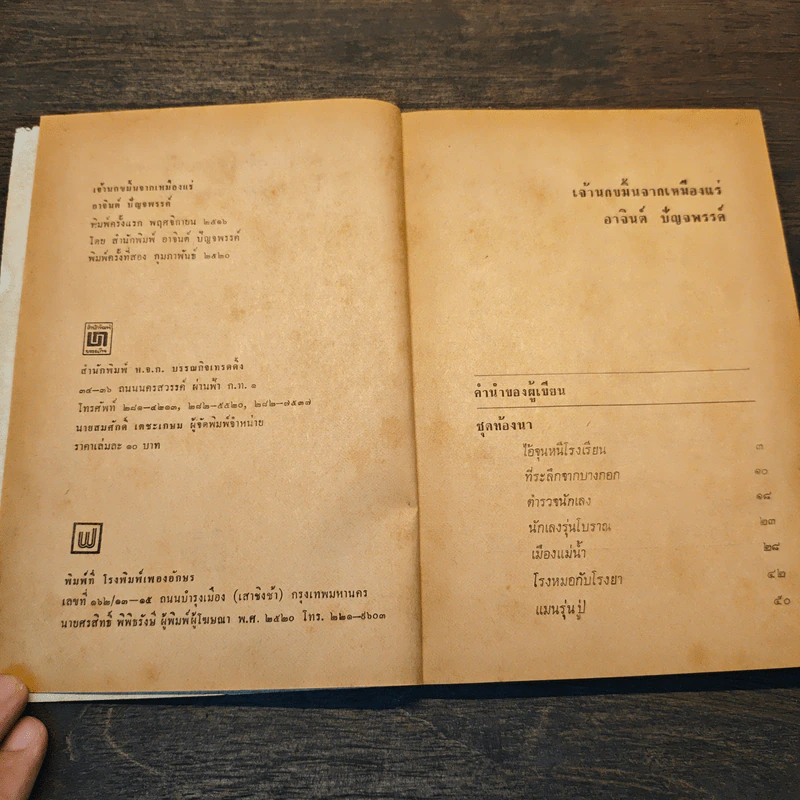 เจ้านกขมิ้นจากเหมืองแร่
อาจินต์ ปัญจพรรค์
พิมพ์ครั้งแรก พฤศจิกายน ๒๕๑๖
โดย สำนักพิมพ์ อาจินต์ ปัญจพรรค์
พิมพ์ครั้งที่สอง กุมภาพันธ์ ๒๕๒๐
สำนักพิมพ์ ห.จ.ก. บรรณกิจเทรดดิ้ง
๓๔-๓๖ ถนนนครสวรรค์ ผ่านฟ้า ก.ท. ๑
โทรศัพท์ ๒๘๑-๔๒๑๓, ๒๘๒-๕๕๒๐, ๒๘๒-๗๕๓๗
นายสมศักดิ์ เตชะเกษม ผู้จัดพิมพ์จำหน่าย
ราคาเล่มละ ๑๐ บาท
พิมพ์ที่ โรงพิมพ์เฟื่องอักษร
เลขที่ ๑๖๒/๑๓-๑๕ ถนนบำรุงเมือง (เสาชิงช้า) กรุงเทพมหานคร
นายศรสิทธิ์ พิพิธรังษี ผู้พิมพ์ผู้โฆษณา พ.ศ. ๒๕๒๐ โทร.
เจ้านกขมิ้นจากเหมืองแร่
อาจินต์ ปัญจพรรค์
คำนำของผู้เขียน
ชุดท้องนา
ไอ้จุนหนีโรงเรียน ๓
ที่ระลึกจากบางกอก ๑๐
ตำรวจนักเลง ๑๘
นักเลงรุ่นโบราณ ๒๓
เมืองแม่น้ำ ๒๘
โรงหมอกับโรงยา ๔๒
แมนรุ่นปู่ ๕๐